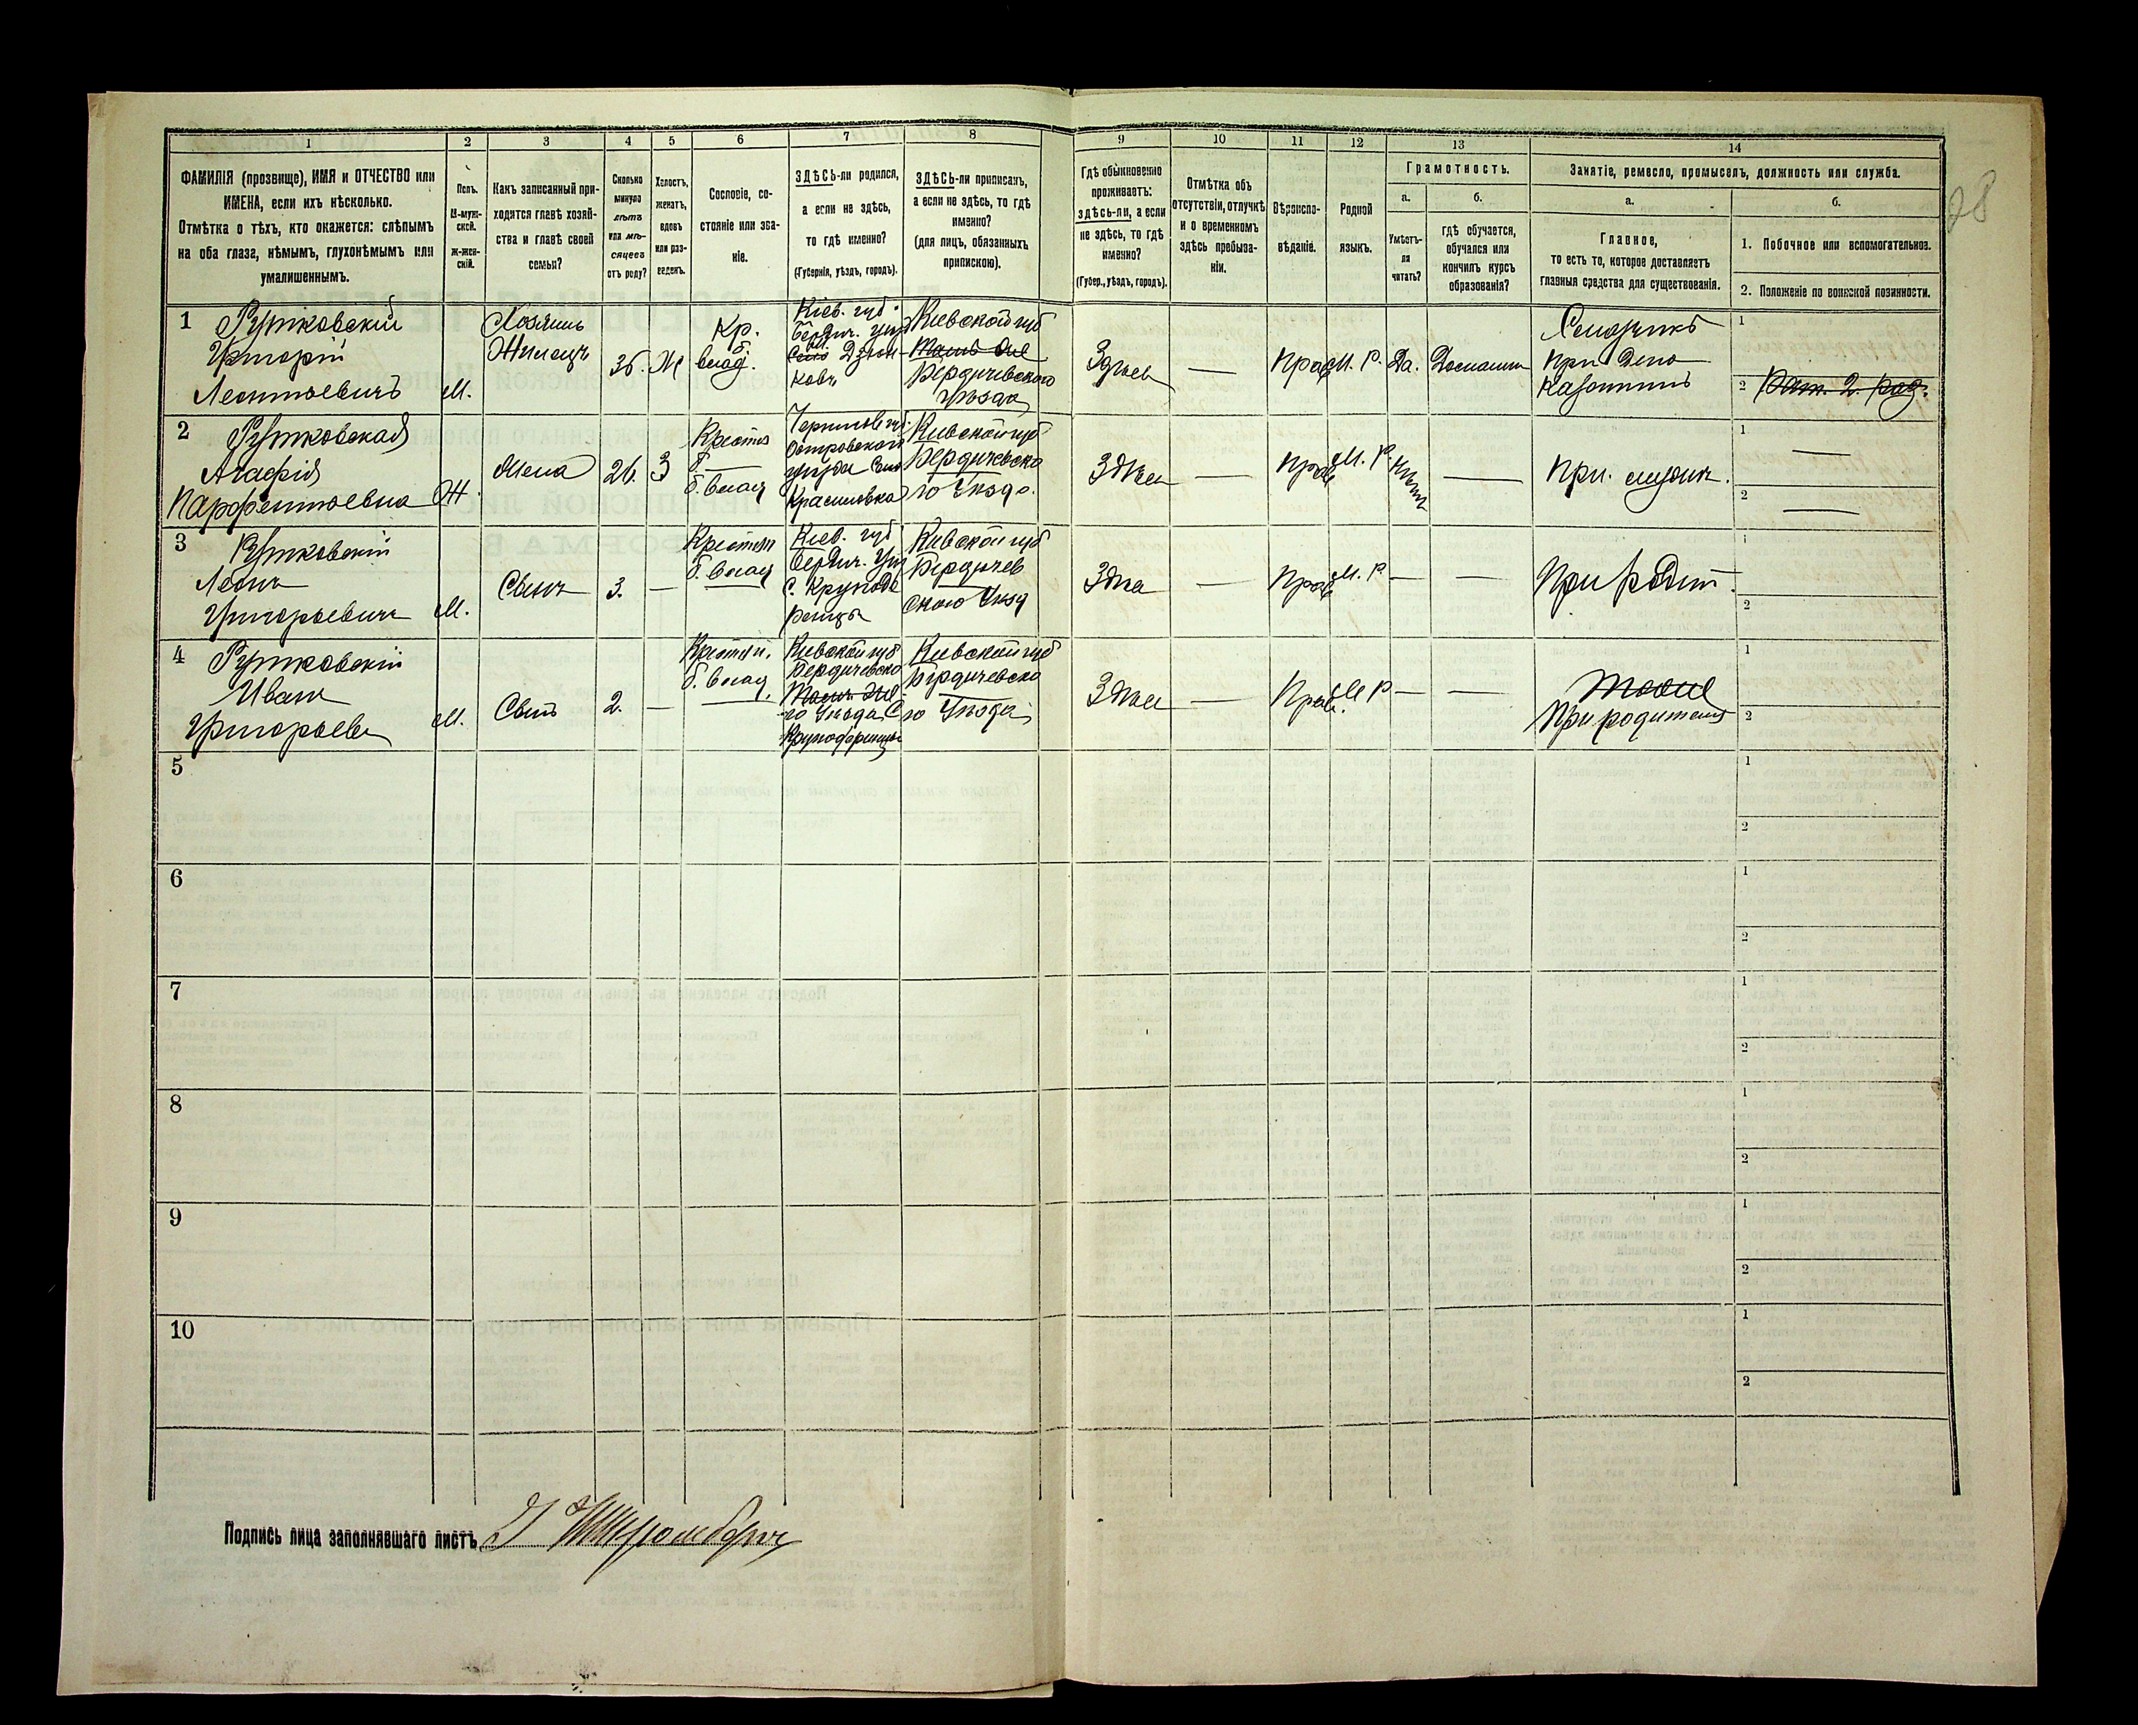 1
2
3
4
5
6
7
8
9
10
11
12
13
14
ФАМИЛІЯ (прозвище), ИМЯ и ОТЧЕСТВО или
ИМЕНА, если ихъ нѣсколько.
Отмѣтка о тѣхъ, кто окажется: слѣпымъ
на оба глаза, нѣмымъ, глухонѣмымъ или
умалишеннымъ.
Полъ.
М-муж-
ской.
ж-жен-
скій.
Какъ записанный при-
ходится главѣ хозяй-
ства и главѣ своей
семьи?
Сколько
минуло
лѣтъ
или мѣ-
сяцевъ
отъ роду?
Холостъ,
женатъ,
вдовъ
или раз-
веденъ.
Сословіе, со-
стояніе или зва-
ніе.
ЗДѢСЬ-ли родился,
а если не здѣсь,
то гдѣ именно?
(Губернія, уѣздъ, городъ).
ЗДѢСЬ-ли приписанъ,
а если не здѣсь, то гдѣ
именно?
(для лицъ, обязанныхъ
припискою).
Гдѣ обыкновенно
проживаетъ:
здѣсь-ли, а если
не здѣсь, то гдѣ
именно?
(Губер., уѣздъ, городъ).
Отмѣтка объ
отсутствіи, отлучкѣ
и о временномъ
здѣсь пребыва-
ніи.
Вѣроиспо-
вѣданіе.
Родной
языкъ.
Грамотность.
а.
Умѣетъ-
ли
читать?
б.
гдѣ обучается,
обучался или
кончилъ курсъ
образованія?
Занятіе, ремесло, промыселъ, должность или служба.
а.
Главное,
то есть то, которое доставляетъ
главныя средства для существованія.
б.
1. Побочное или вспомогательное.
2. Положеніе по воинской повинности.
28
1
Рутковскій
Григорій
Леонтьевичъ
М.
Хозяинъ
Жилецъ
Ж
Кр.
б.
влад.
Кіев. губ.
Бердич. уѣз
Кіевской губ
Тамъ же
Бердичевскаго
Уѣзда
Здѣсь
—
Прав
М. Р.
Да.
Домашн
при Депо
Казатинъ
1
2 Рат. 2. раз.
2
Рутковская
Агафія
Парфентьевна
Ж.
Жена
26.
З
Крестья
б. влад
Островскаго
уѣзда Село
Красиловка
Кіевской губ
Бердичевска
го Уѣзда.
Здѣсь
—
Прав
М. Р.
—
При. мужѣ.
1
—
2
—
3
Рутковскій
Леонъ
Григорьевичъ
М.
Сынъ
3.
—
Крестьян
б. влад
Кіев. губ
Бердич. Уѣз
С. Круподе
ринцы
Кіевской губ
Бердичев
скаго Уѣзд
—
Прав
М. Р
—
—
При Родит.
1
2
4
Рутковскій
Иванъ
Григорьев
М.
Сынъ
2.
—
Крестьян.
б. влад.
Кіевской губ
Бердичевска
Тамъ же
го Уѣзда С.
Круподеринцы
Кіевской губ
Бердичевска
го Уѣзда
Здѣсь
—
Прав.
М Р
—
—
Тоже
При родителях
1
2
5
1
2
6
1
2
7
1
2
8
1
2
9
1
2
10
1
2
Подпись лица заполнявшаго листъ